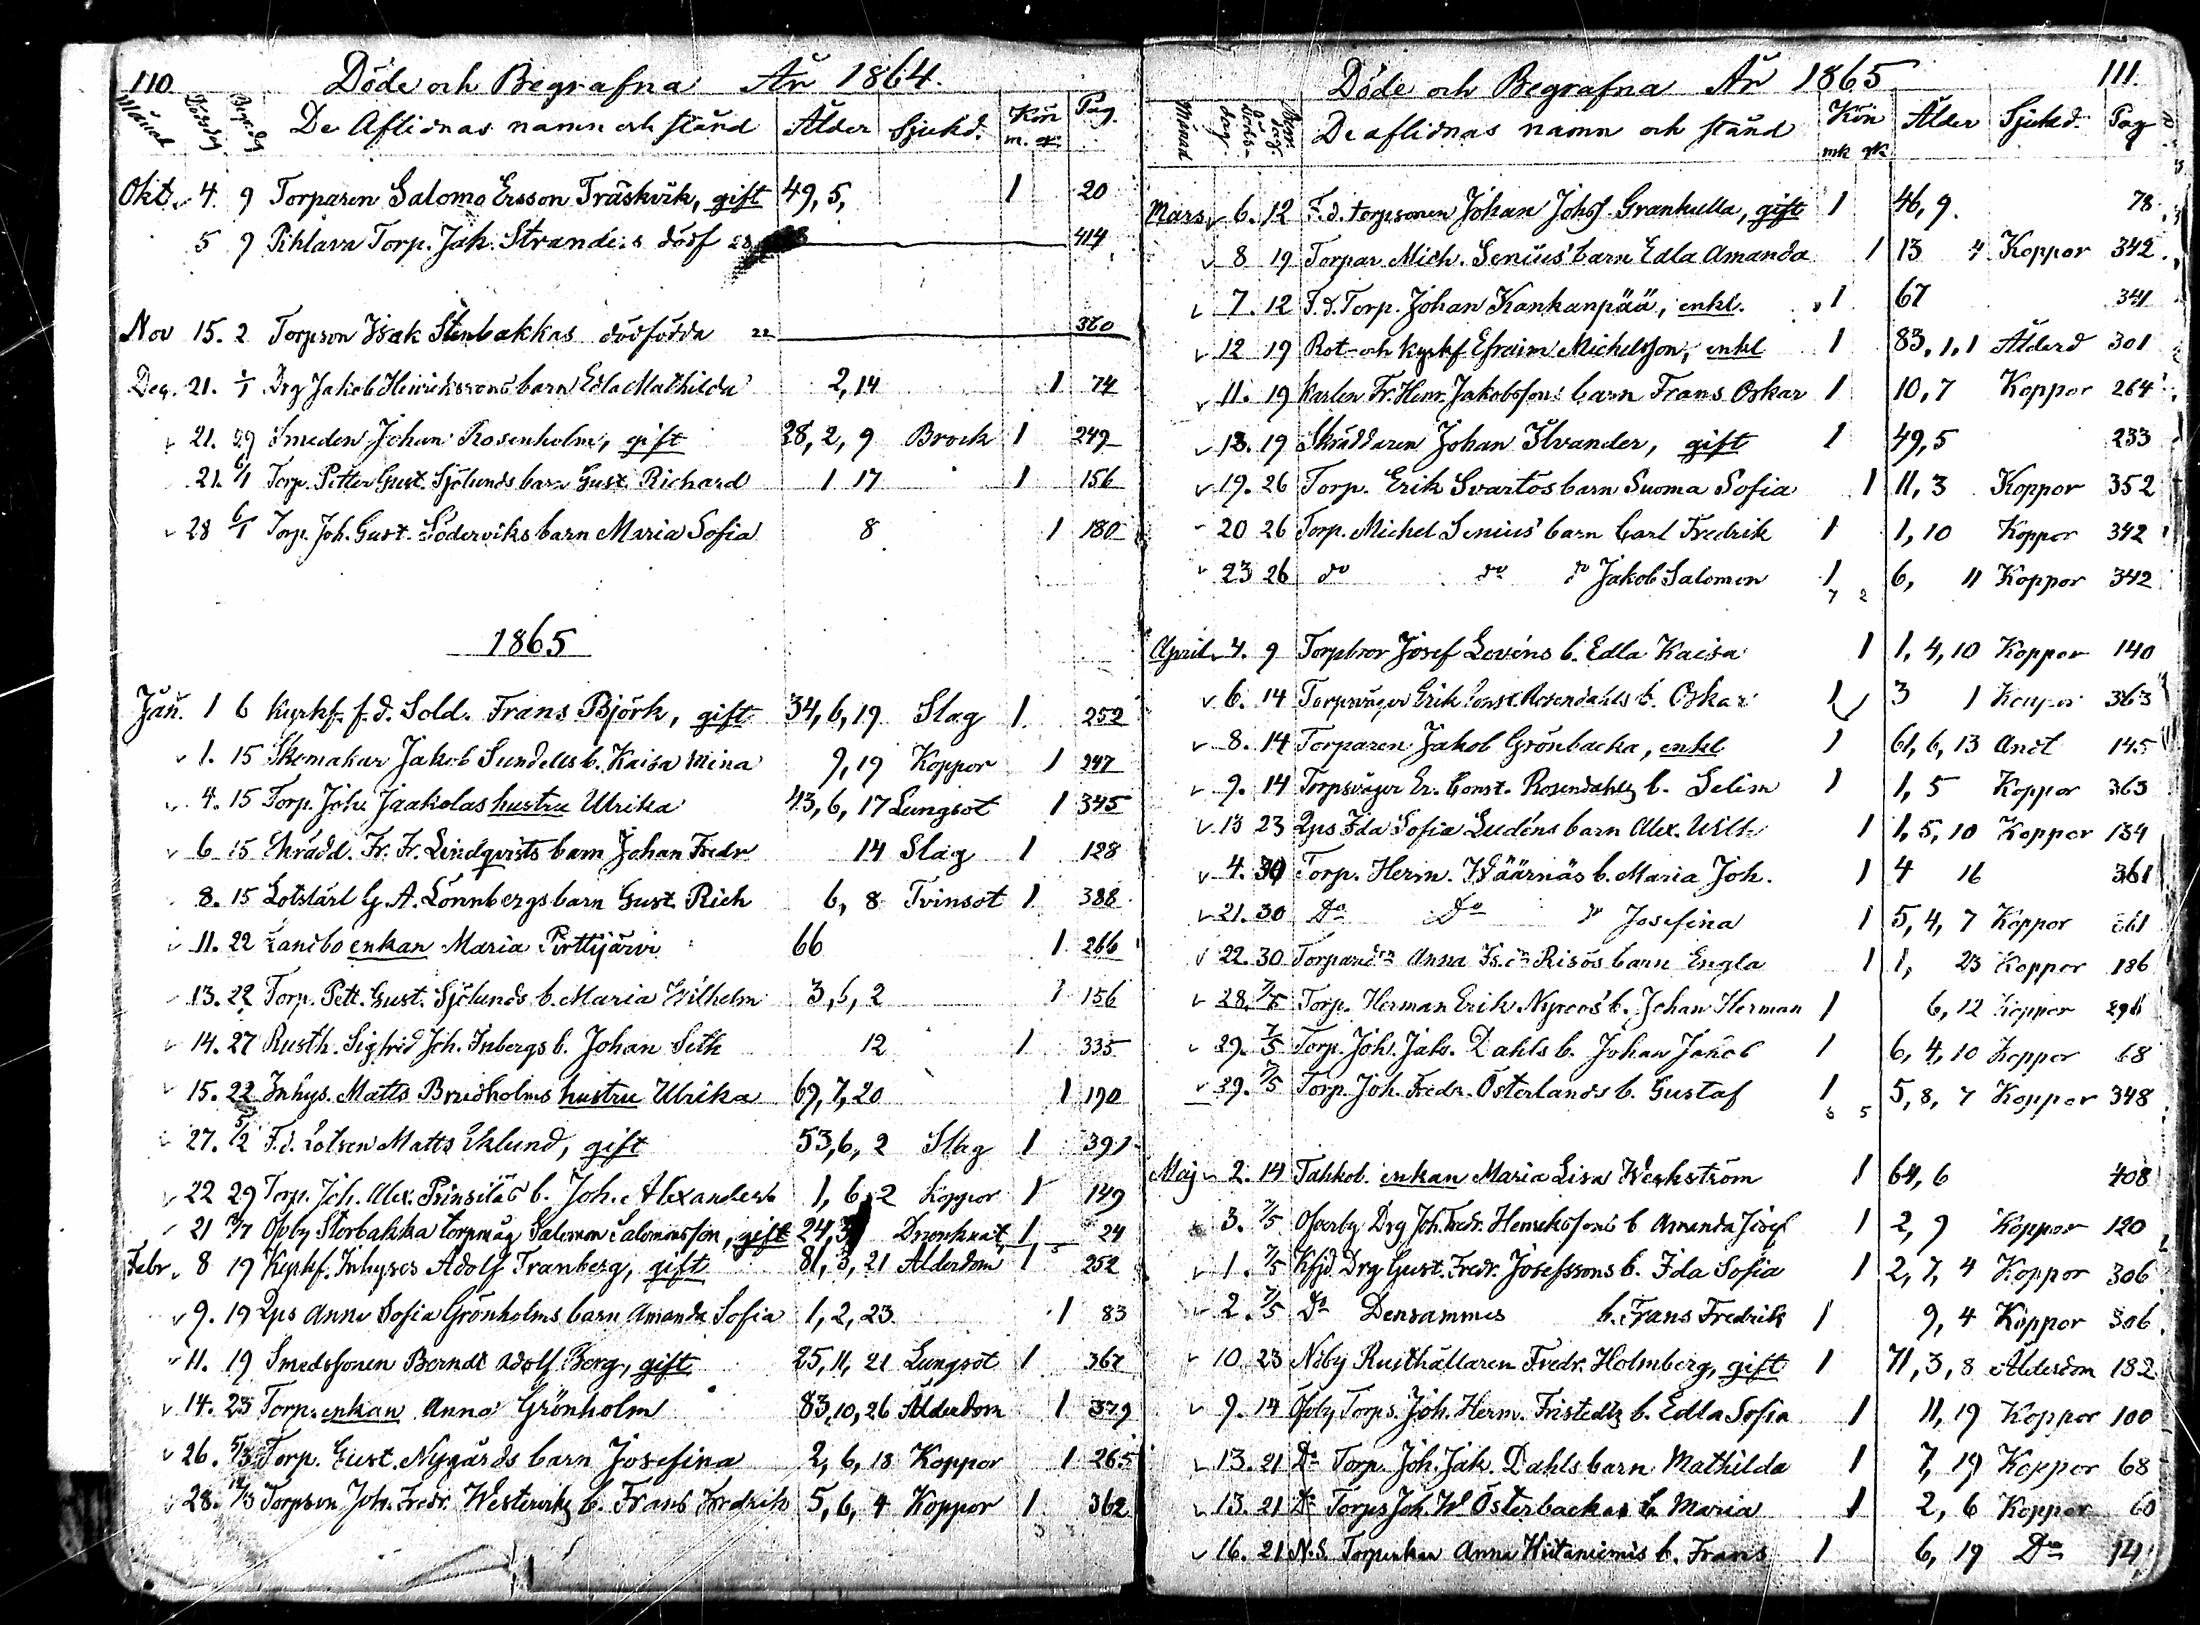 110 Döde och Begrafna År 1864.
Månad Dödsdag Begr.dag De Aflidnas namn och stånd Ålder Sjukd. Kön m. qk. Pag.
Okt. 4. 9 Torparen Salomo Ersson Träskvik, gift 49, 5, 1 20
5 9 Pihlava Torp. Jak. Strande:s dödf 414
Nov 15. 2 Torpson Isak Stenbakkas dödfödda 360
Dec. 21. 1/1 Drg Jakob Henrikssons barn Edla Mathilda 2, 14 1 74
21. 29 Smeden Johan Rosenholm, gift 28, 2, 9 Brock 1 249
21. 6/1 Torp. Petter Gust. Sjölunds barn Gust. Richard 1 17 1 156
28 6/1 Torp. Joh. Gust. Söderviks barn Maria Sofia 8 1 180
1865
Jan. 1 6 Kyrkf. f.d. Sold. Frans Björk, gift 34, 6, 19 Slag 1 252
1. 15 Skomakar Jakob Sundells b. Kaisa Mina 9, 19 Koppor 1 247
4. 15 Torp. Joh. Jaakolas hustru Ulrika 43, 6, 17 Lungsot 1 345
6 15 Skrädd. Fr. Fr. Lindqvists barn Johan Fredr 14 Slag 1 128
8. 15 Lotslärl G. A. Lönnbergs barn Gust. Rich 6, 8 Tvinsot 1 388
11. 22 Landbo enkan Maria Pirttijärvi 66 1 266
13. 22 Torp. Pett. Gust. Sjölunds b. Maria Wilhelm 3, 6, 2 1 156
14. 27 Rusth. Sigfrid Joh. Inbergs b. Johan Seth 12 1 335
15. 22 Inhys. Matts Bredholms hustru Ulrika 69, 7, 20 1 190
27. 5/2 F.d. Lotsen Matts Eklund, gift 53, 6, 2 Slag 1 391
22 29 Torp. Joh. Alex. Prinsiläs b. Joh. Alexander 1, 6, 2 Koppor 1 149
21 Opby Storbakka torpmåg Salomon Salomonsson, gift 24, Drunknat 1 24
Febr. 8 19 Kyrkf. Inhyses Adolf Tranberg, gift 81, 3, 21 Ålderdom 1 252
9. 19 Qps Anna Sofia Grönholms barn Amanda Sofia 1, 2, 23 1 83
11. 19 Smedssonen Berndt Adolf Berg, gift 25, 11, 21 Lungsot 1 367
14. 23 Torp. enkan Anna Grönholm 83, 10, 26 Ålderdom 1 379
26. 5/3 Torp. Gust. Nygårds barn Josefina 2, 6, 18 Koppor 1 265
28. 12/3 Torpson Joh. Fredr. Westerviks b. Frans Fredrik 5, 6, 4 Koppor 1 362
Döde och Begrafna År 1865 111.
Månad De aflidnas namn och stånd Kön mk qk Ålder Sjukd. Pag
Mars 6. 12 F.d. torpsonen Johan Johsf Grankulla, gift 1 46, 9. 78
8 19 Torpar Mich. Senius' barn Edla Amanda 1 13 4 Koppor 342
7. 12 F.d. Torp. Johan Kankanpää, enkl. 1 67 341
12 19 Rot- och kyrkf Efraim Michelsson, enkl 1 83, 1, 1 Ålderd 301
11. 19 Karlen Fr. Henr. Jakobssons barn Frans Oskar 1 10, 7 Koppor 264
13. 19 Skräddaren Johan Ilvander, gift 1 49, 5 233
19. 26 Torp. Erik Svartös barn Suoma Sofia 1 11, 3 Koppor 352
20 26 Torp. Michel Senius' barn Carl Fredrik 1 1, 10 Koppor 342
23 26 do do do Jakob Salomon 1 6, 11 Koppor 342
7 2
April 4. 9 Torpbror Josef Lovéns b. Edla Kaisa 1 1, 4, 10 Koppor 140
6. 14 Torpsvåger Erik Const. Rosendahls b. Oskar 1 3 1 Koppor 363
8. 14 Torparen Jakob Grönbacka, enkl 1 61, 6, 13 Andt 145
9. 14 Torpsvåger Er. Const. Rosendahls b. Selim 1 1, 5 Koppor 363
13 23 Qps Ida Sofia Ludéns barn Alex. Wilh 1 1, 5, 10 Koppor 134
4. 30 Torp. Herm. Wäärnäs b. Maria Joh. 1 4 16 361
21. 30 Do Do do Josefina 1 5, 4, 7 Koppor 361
22. 30 Anna Risös barn Engla 1 1, 23 Koppor 186
28. 7/5 Torp. Herman Erik Nyroos' b. Johan Herman 1 6, 12 Koppor
29. 7/5 Torp. Joh. Jak. Dahls b. Johan Jakob 1 6, 4, 10 Koppor 68
29. 7/5 Torp. Joh. Fredr. Österlands b. Gustaf 1 5, 8, 7 Koppor 348
6 5
Maj 2. 14 Takkob. enkan Maria Lisa Werkström 1 64, 6 408
3. 7/5 Drg Joh. Fredr. Henrikssons b. Amanda Josef 1 2, 9 Koppor 120
1. 7/5 Drg Gust. Fredr. Josefssons b. Ida Sofia 1 2, 7, 4 Koppor 306
2. 7/5 Do Densammes b. Frans Fredrik 1 9, 4 Koppor 306
10 23 Noby Rusthållaren Fredr. Holmberg, gift 1 71, 3, 8 Ålderdom 182
9. 14 Opby Torps. Joh. Herm. Fristedts b. Edla Sofia 1 11, 19 Koppor 100
13. 21 Do Torp. Joh. Jak. Dahls barn Mathilda 1 7, 19 Koppor 68
13. 21 Do Torps Joh. W. Österbackas b. Maria 1 2, 6 Koppor 60
16. 21 N.S. Torpenkan Anna Hiitaniemis b. Frans 1 6, 19 Do